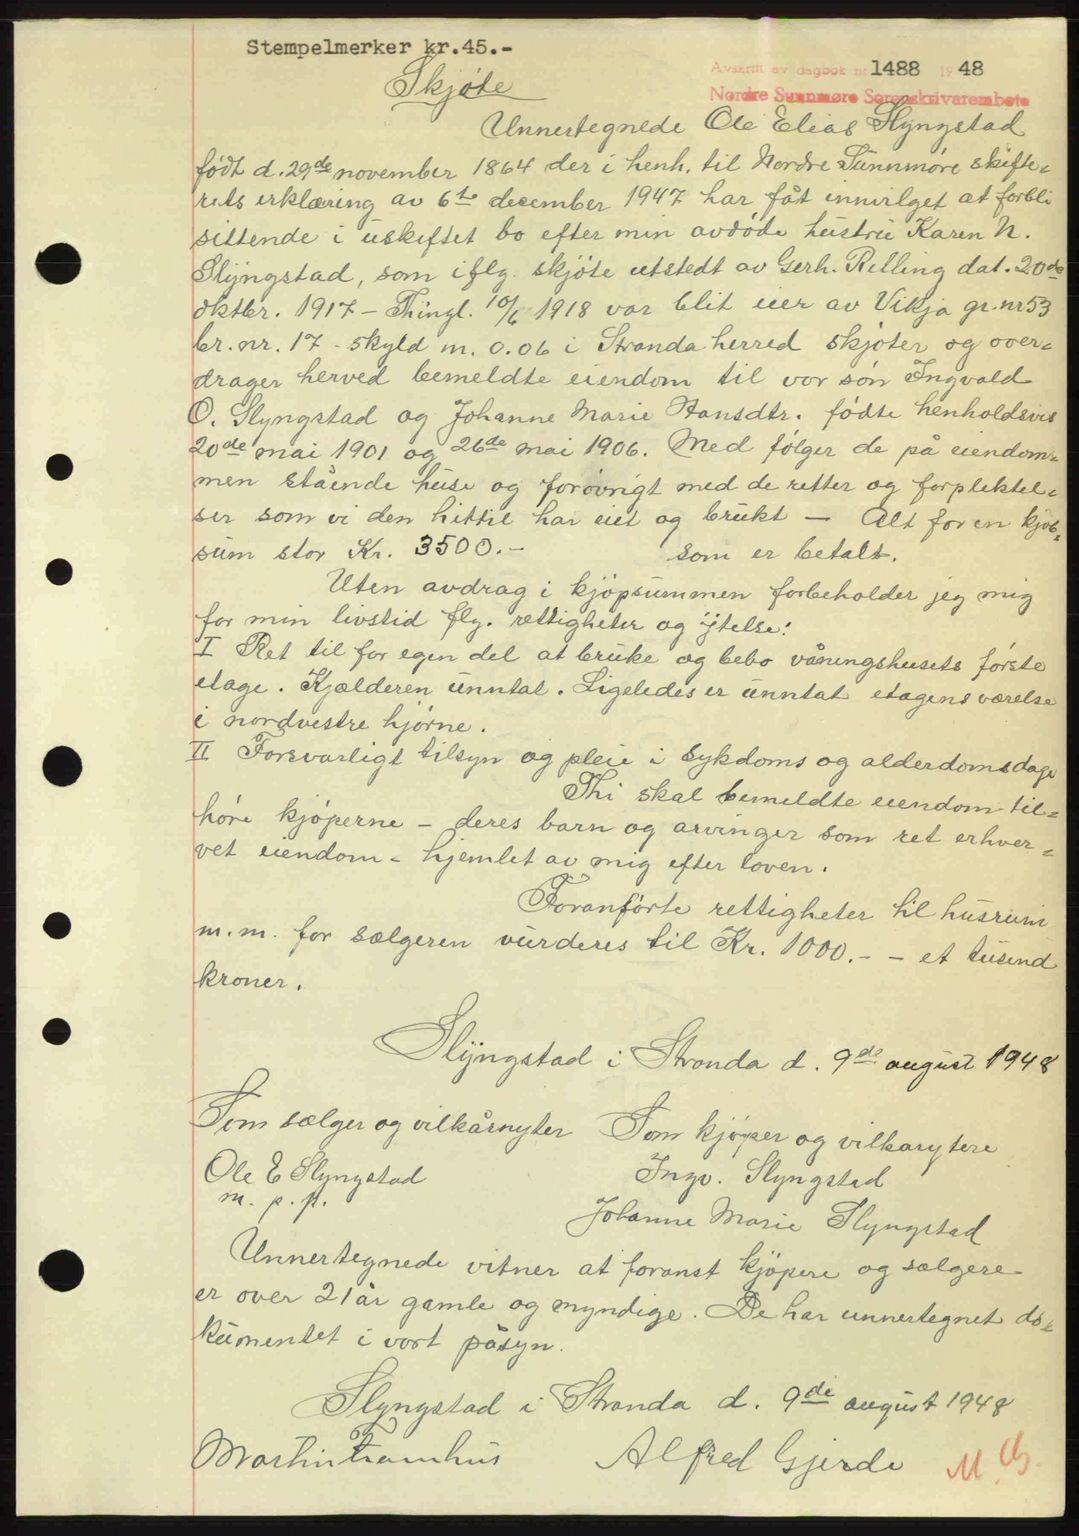 Stempelmerker kr.45.-
Avskrift av dagbok nr 1488 1948
Nordre Sunnmøre Sorenskrivarembete
Skjøte
Unnertegnede Ole Elias Slyngstad
født d. 29de november 1864 der i henh. til Nordre Sunnmøre skifte-
rets erklæring av 6te december 1947 har fåt innvilget at forbli
sittende i uskiftet bo efter min avdøde hustru Karen N.
Slyngstad, som iflg. skjøte utstedt av Gerh. Relling dat. 20de
oktbr. 1917 - Thingl. 10/6 1918 var blit eier av Vikja gr.nr 53
br. nr. 17 - skyld m. 0.06 i Stranda herred skjøter og over-
drager herved bemeldte eiendom til vor søn Ingvald
O. Slyngstad og Johanne Marie Hansdtr. fødte henholdsvis
20de mai 1901 og 26de mai 1906. Med følger de på eiendom-
men stående huse og forøvrigt med de retter og forpliktel-
ser som vi den hittil har eiet og brukt - Alt for en kjøb-
sum stor Kr. 3500.- som er betalt.
Uten avdrag i kjøpsummen forbeholder jeg mig
for min livstid flg. rettigheter og ytelse:
I Ret til for egen del at bruke og bebo våningshusets første
etage. Kjælderen unntat. Ligeledes er unntat etagens værelse
i nordvestre hjørne.
II Forsvarligt tilsyn og pleie i sykdoms og alderdomsdage
Thi skal bemeldte eiendom til-
høre kjøperne - deres barn og arvinger som ret erhver-
vet eiendom - hjemlet av mig efter loven.
Foranførte rettigheter til husrum
m.m. for sælgeren vurderes til Kr. 1000.- - et tusind
kroner.
Slyngstad i Stranda d. 9de august 1948
Som sælger og vilkårnyter Som kjøper og vilkarytere
Ole E Slyngstad Ingv. Slyngstad
m. p. p.
Johanne Marie Slyngstad
Unnertegnede vitner at foranst kjøpere og sælgere
er over 21 år gamle og myndige. De har unnertegnet do-
kumentet i vort påsyn.
Slyngstad i Stranda d. 9de august 1948
Martin Framhus Alfred Gjerde